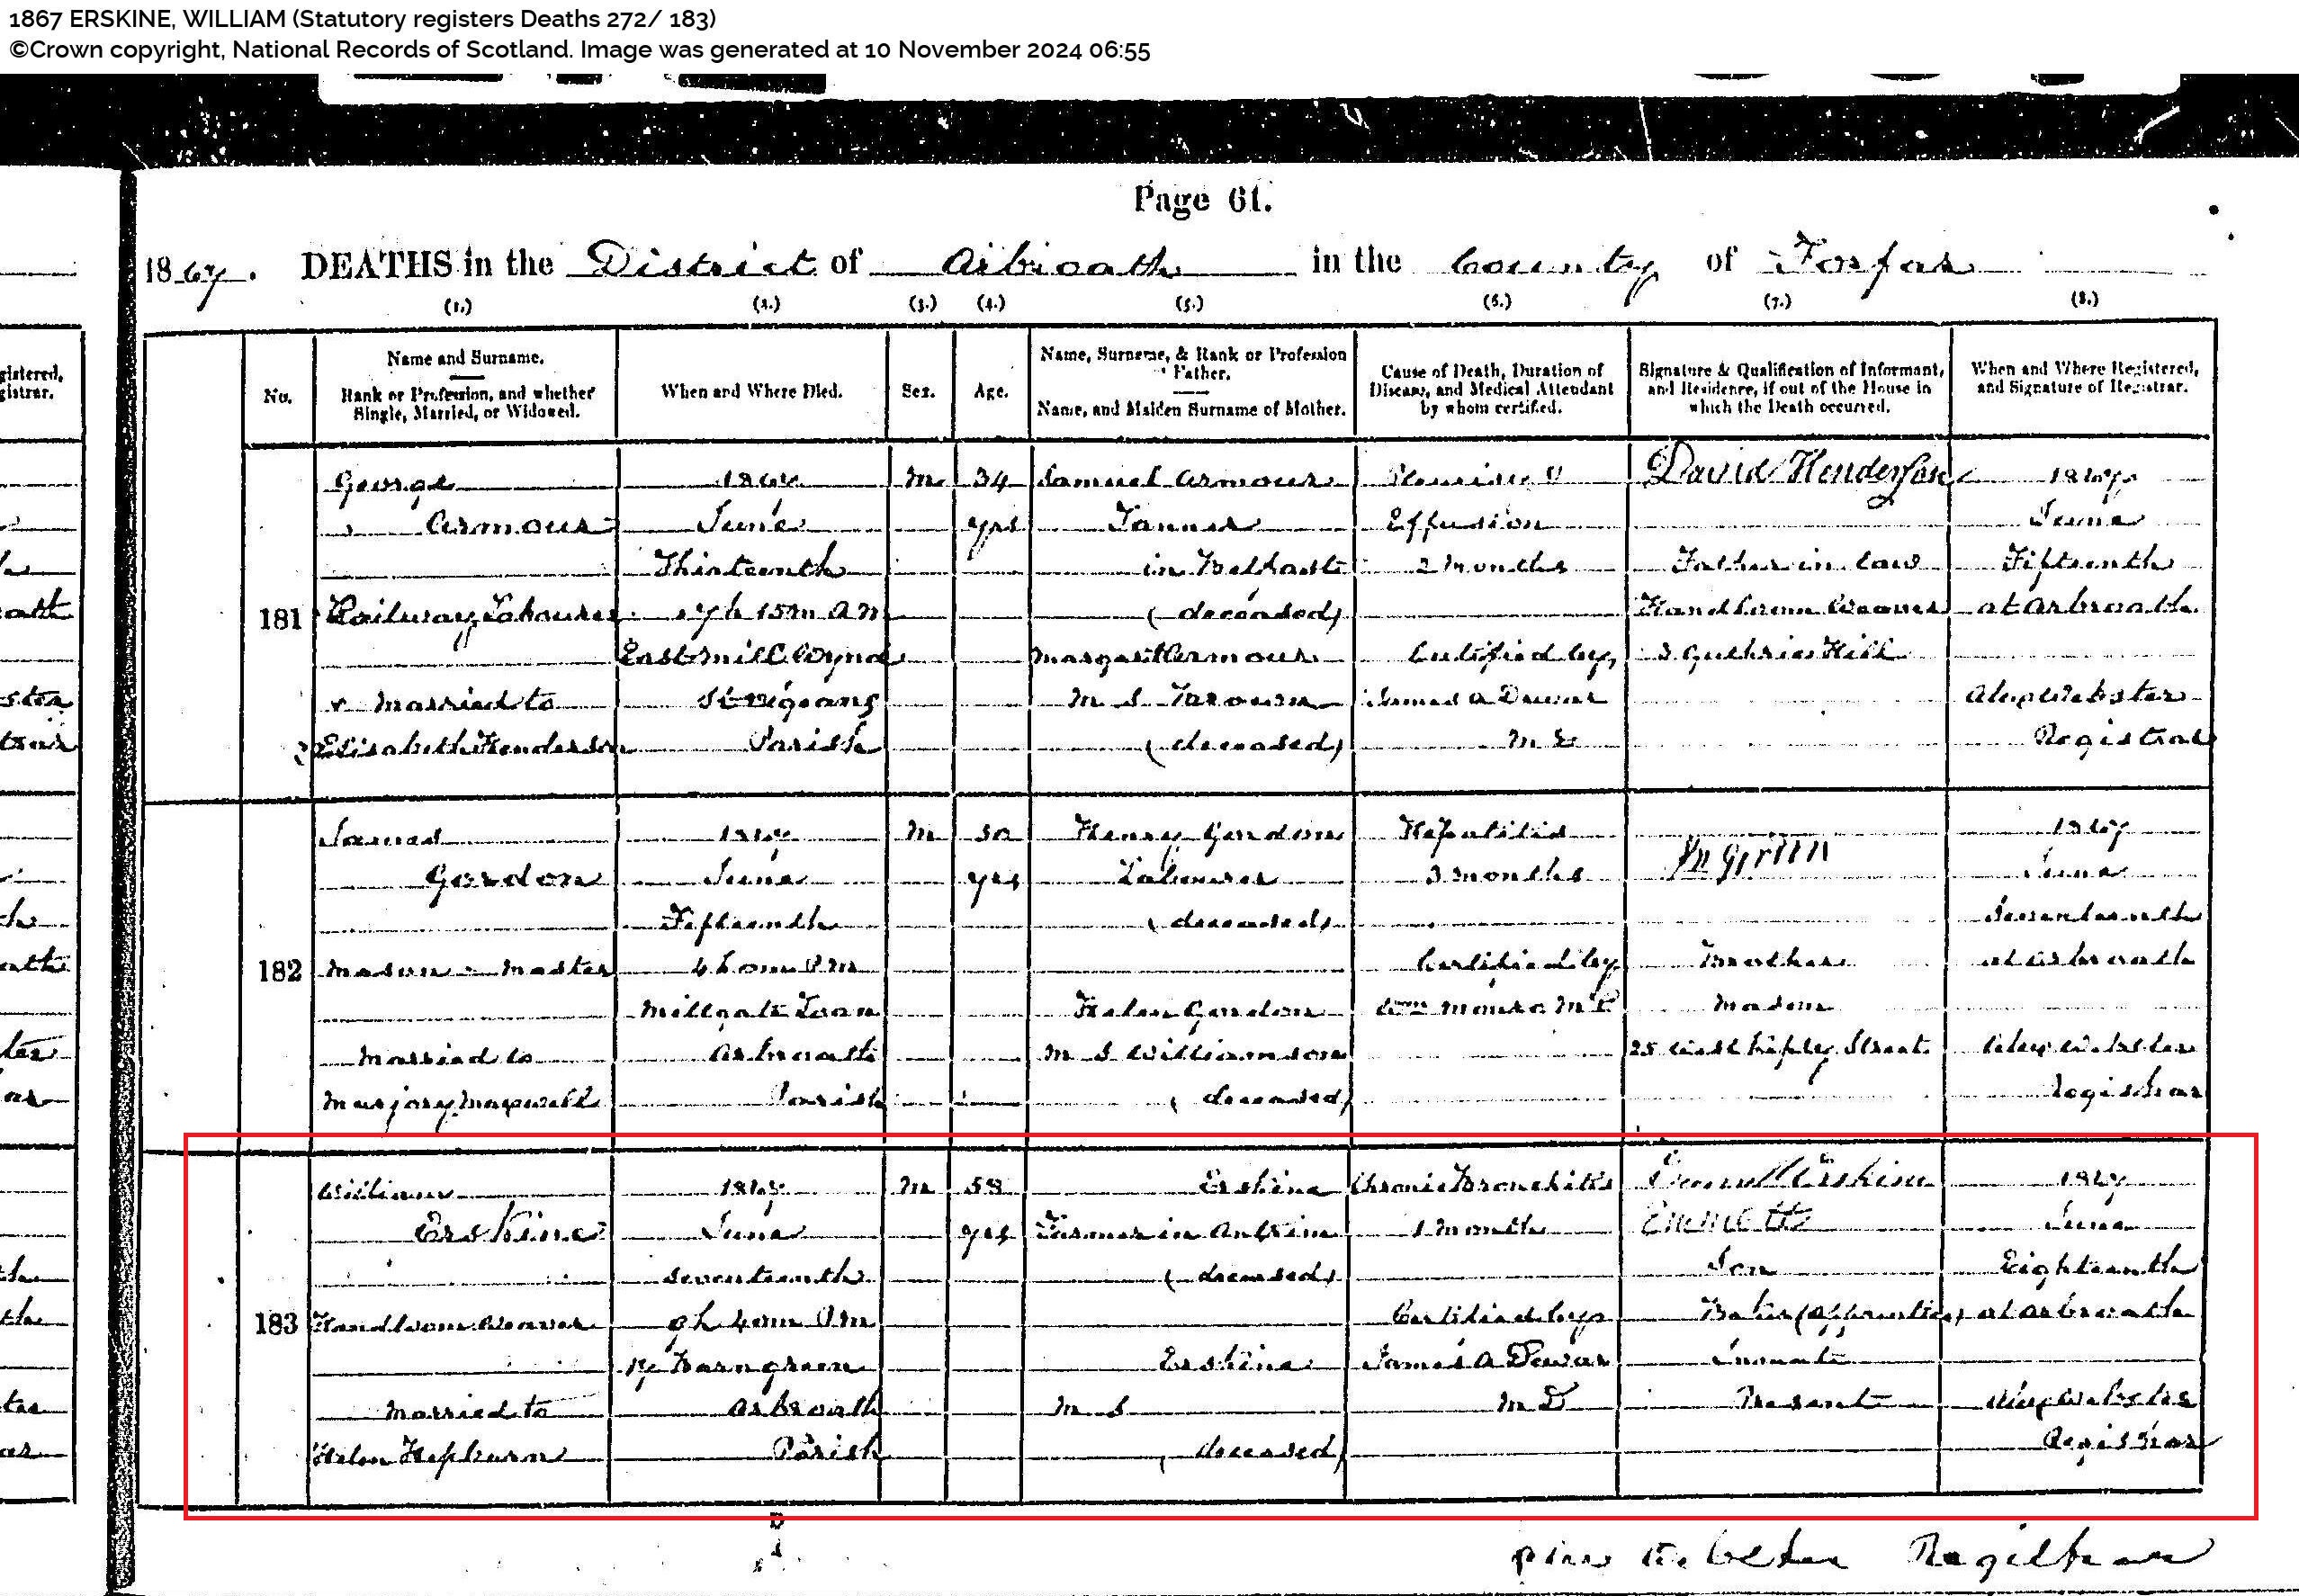 1867 ERSKINE, WILLIAM (Statutory registers Deaths 272/ 183)
©Crown copyright, National Records of Scotland. Image was generated at 10 November 2024 06:55
Page 61.
1867. DEATHS in the District of Arbroath in the County of Forfar
(1.) (2.) (3.) (4.) (5.) (6.) (7.) (8.)
No.
Name and Surname.
Rank or Profession, and whether
Single, Married, or Widowed.
When and Where Died.
Sex.
Age.
Name, Surname, & Rank or Profession
Father.
Name, and Maiden Surname of Mother.
Cause of Death, Duration of
Disease, and Medical Attendant
by whom certified.
Signature & Qualification of Informant,
and Residence, if out of the House in
which the Death occurred.
When and Where Registered,
and Signature of Registrar.
181
George
Armour
Railway Labourer
Married to
Elisabeth Henderson
1867
June
Thirteenth
7h 15m AM
East Mill Wynd
St Vigeans
Parish
M
34
yrs
Samuel Armour
Tanner
in Belfast
(deceased)
Margaret Armour
M S Brown
(deceased)
Effusion
2 Months
Certified by
James A Dewar
M D
David Henderson
Father in law
Handloom Weaver
3 Guthrie Hill
1867
June
Fifteenth
at Arbroath
Alexr Webster
Registrar
182
James
Gordon
Mason - Master
Married to
Marjory Maxwell
1867
June
Fifteenth
4h 0m PM
Millgate Loan
Arbroath
Parish
M
50
yrs
Henry Gordon
Labourer
(deceased)
Helen Gordon
M S Williamson
(deceased)
Hepatitis
3 months
Certified by
Wm Monro M D
Brother
Mason
25 West Street
1867
June
Seventeenth
at Arbroath
Alexr Webster
Registrar
183
William
Erskine
Handloom Weaver
Married to
Helen Hepburn
1867
June
Seventeenth
9h 40m PM
17 Barngreen
Arbroath
Parish
M
58
yrs
Erskine
Farmer in Antrim
(deceased)
Erskine
M S
(deceased)
Chronic Bronchitis
1 Month
Certified by
James A Dewar
M D
Erskine
Emmett
Son
Baker (apprentice)
Inmate
Present
1867
June
Eighteenth
at Arbroath
Alexr Webster
Registrar
Webster Registrar